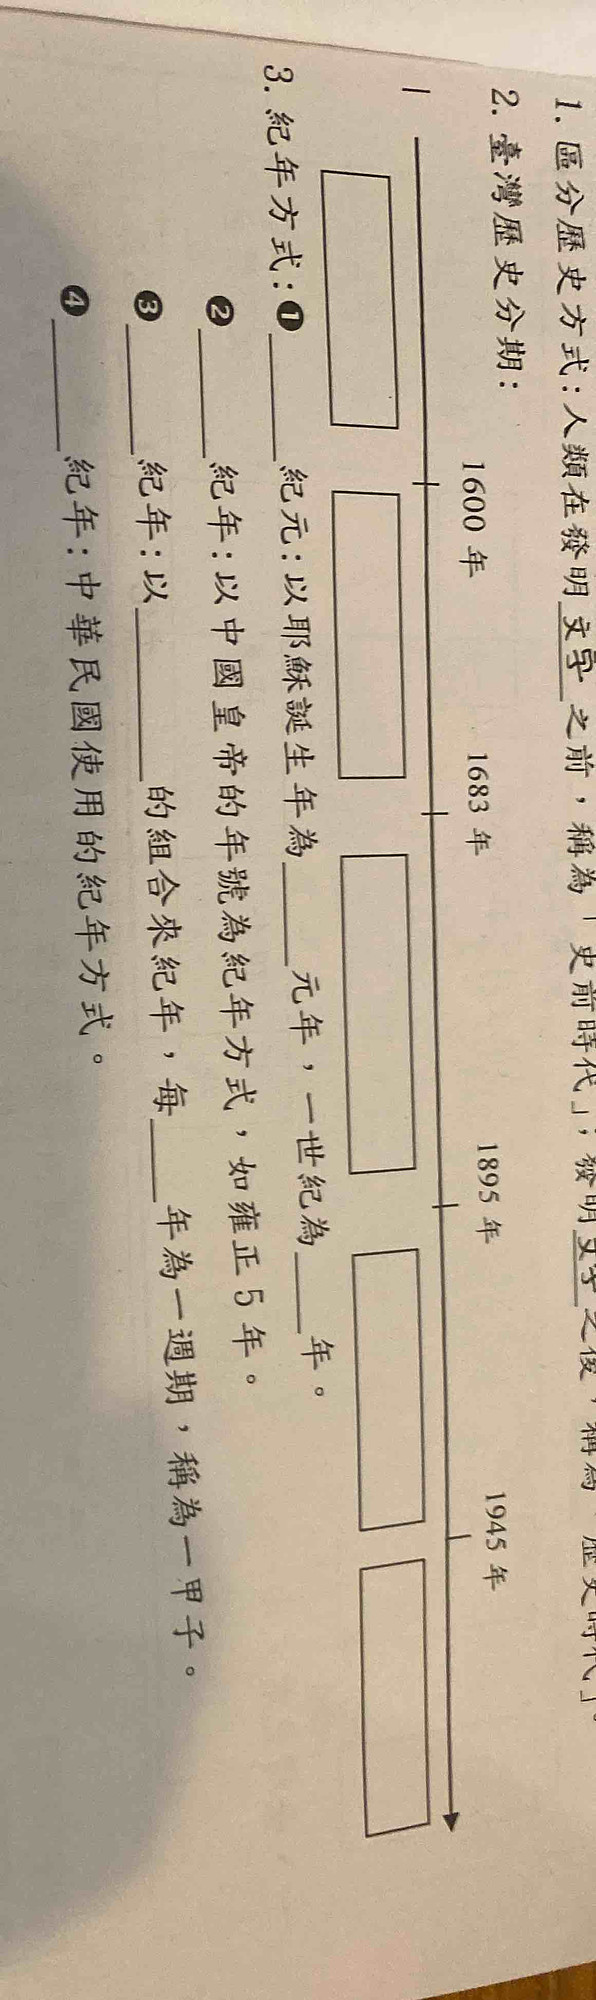 1. 區分歷史方式：人類在發明文字之前，稱為「史前時代」；發明文字之後，稱為「歷史時代」。
2. 臺灣歷史分期：
1600 年 1683 年 1895 年 1945 年
3. 紀年方式：❶______紀元：以耶穌誕生年為______元年，一世紀為______年。
❷______紀年：以中國皇帝的年號為紀年方式，如雍正 5 年。
❸______紀年：以______的組合來紀年，每______年為一週期，稱為一甲子。
❹______紀年：中華民國使用的紀年方式。